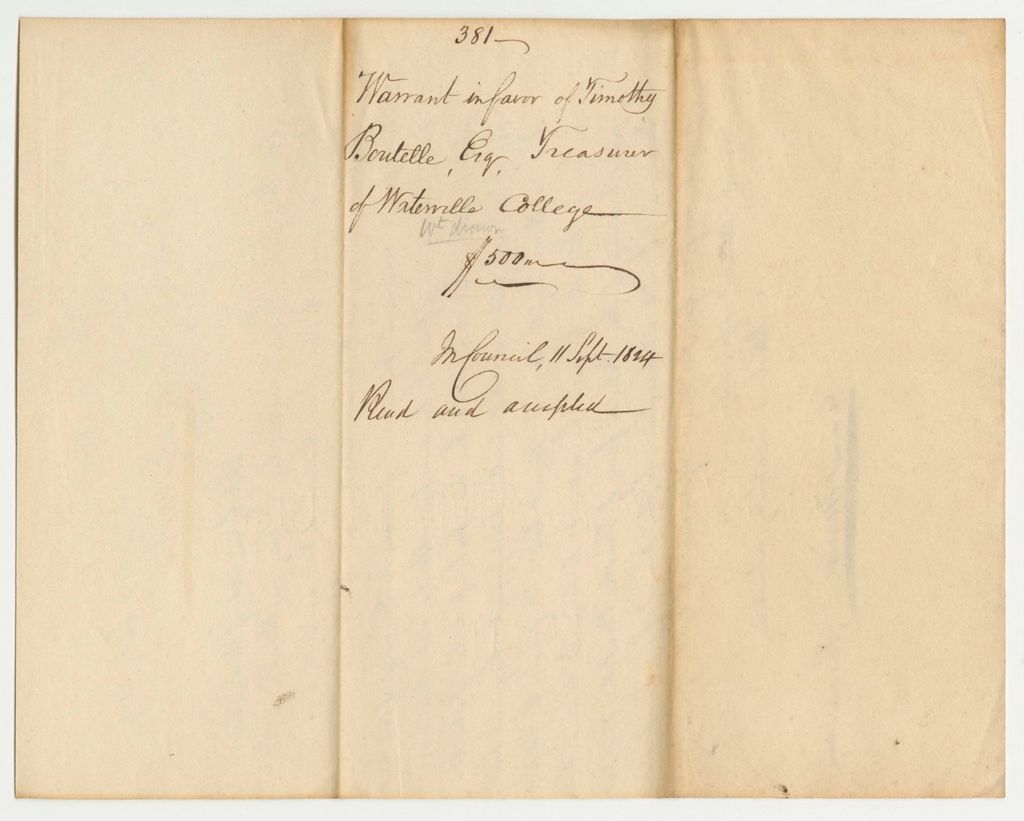 381
Warrant in favor of Timothy
Boutelle, Esq, Treasurer
of Waterville College
wt drawn
$500
In Council, 11 Sept. 1824
Read and accepted